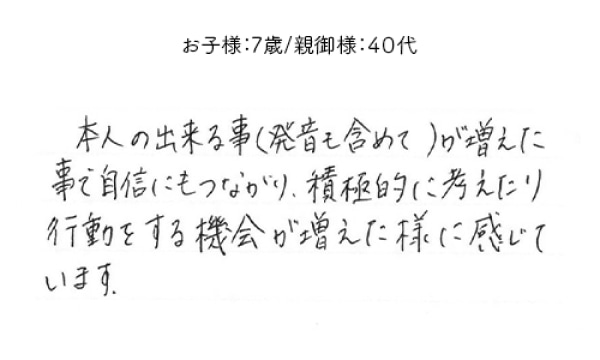 お子様:7歳/親御様:40代
本人の出来る事(発音も含めて )が増えた
事で自信にもつながり、積極的に考えたり
行動をする機会が増えた様に感じて
います.